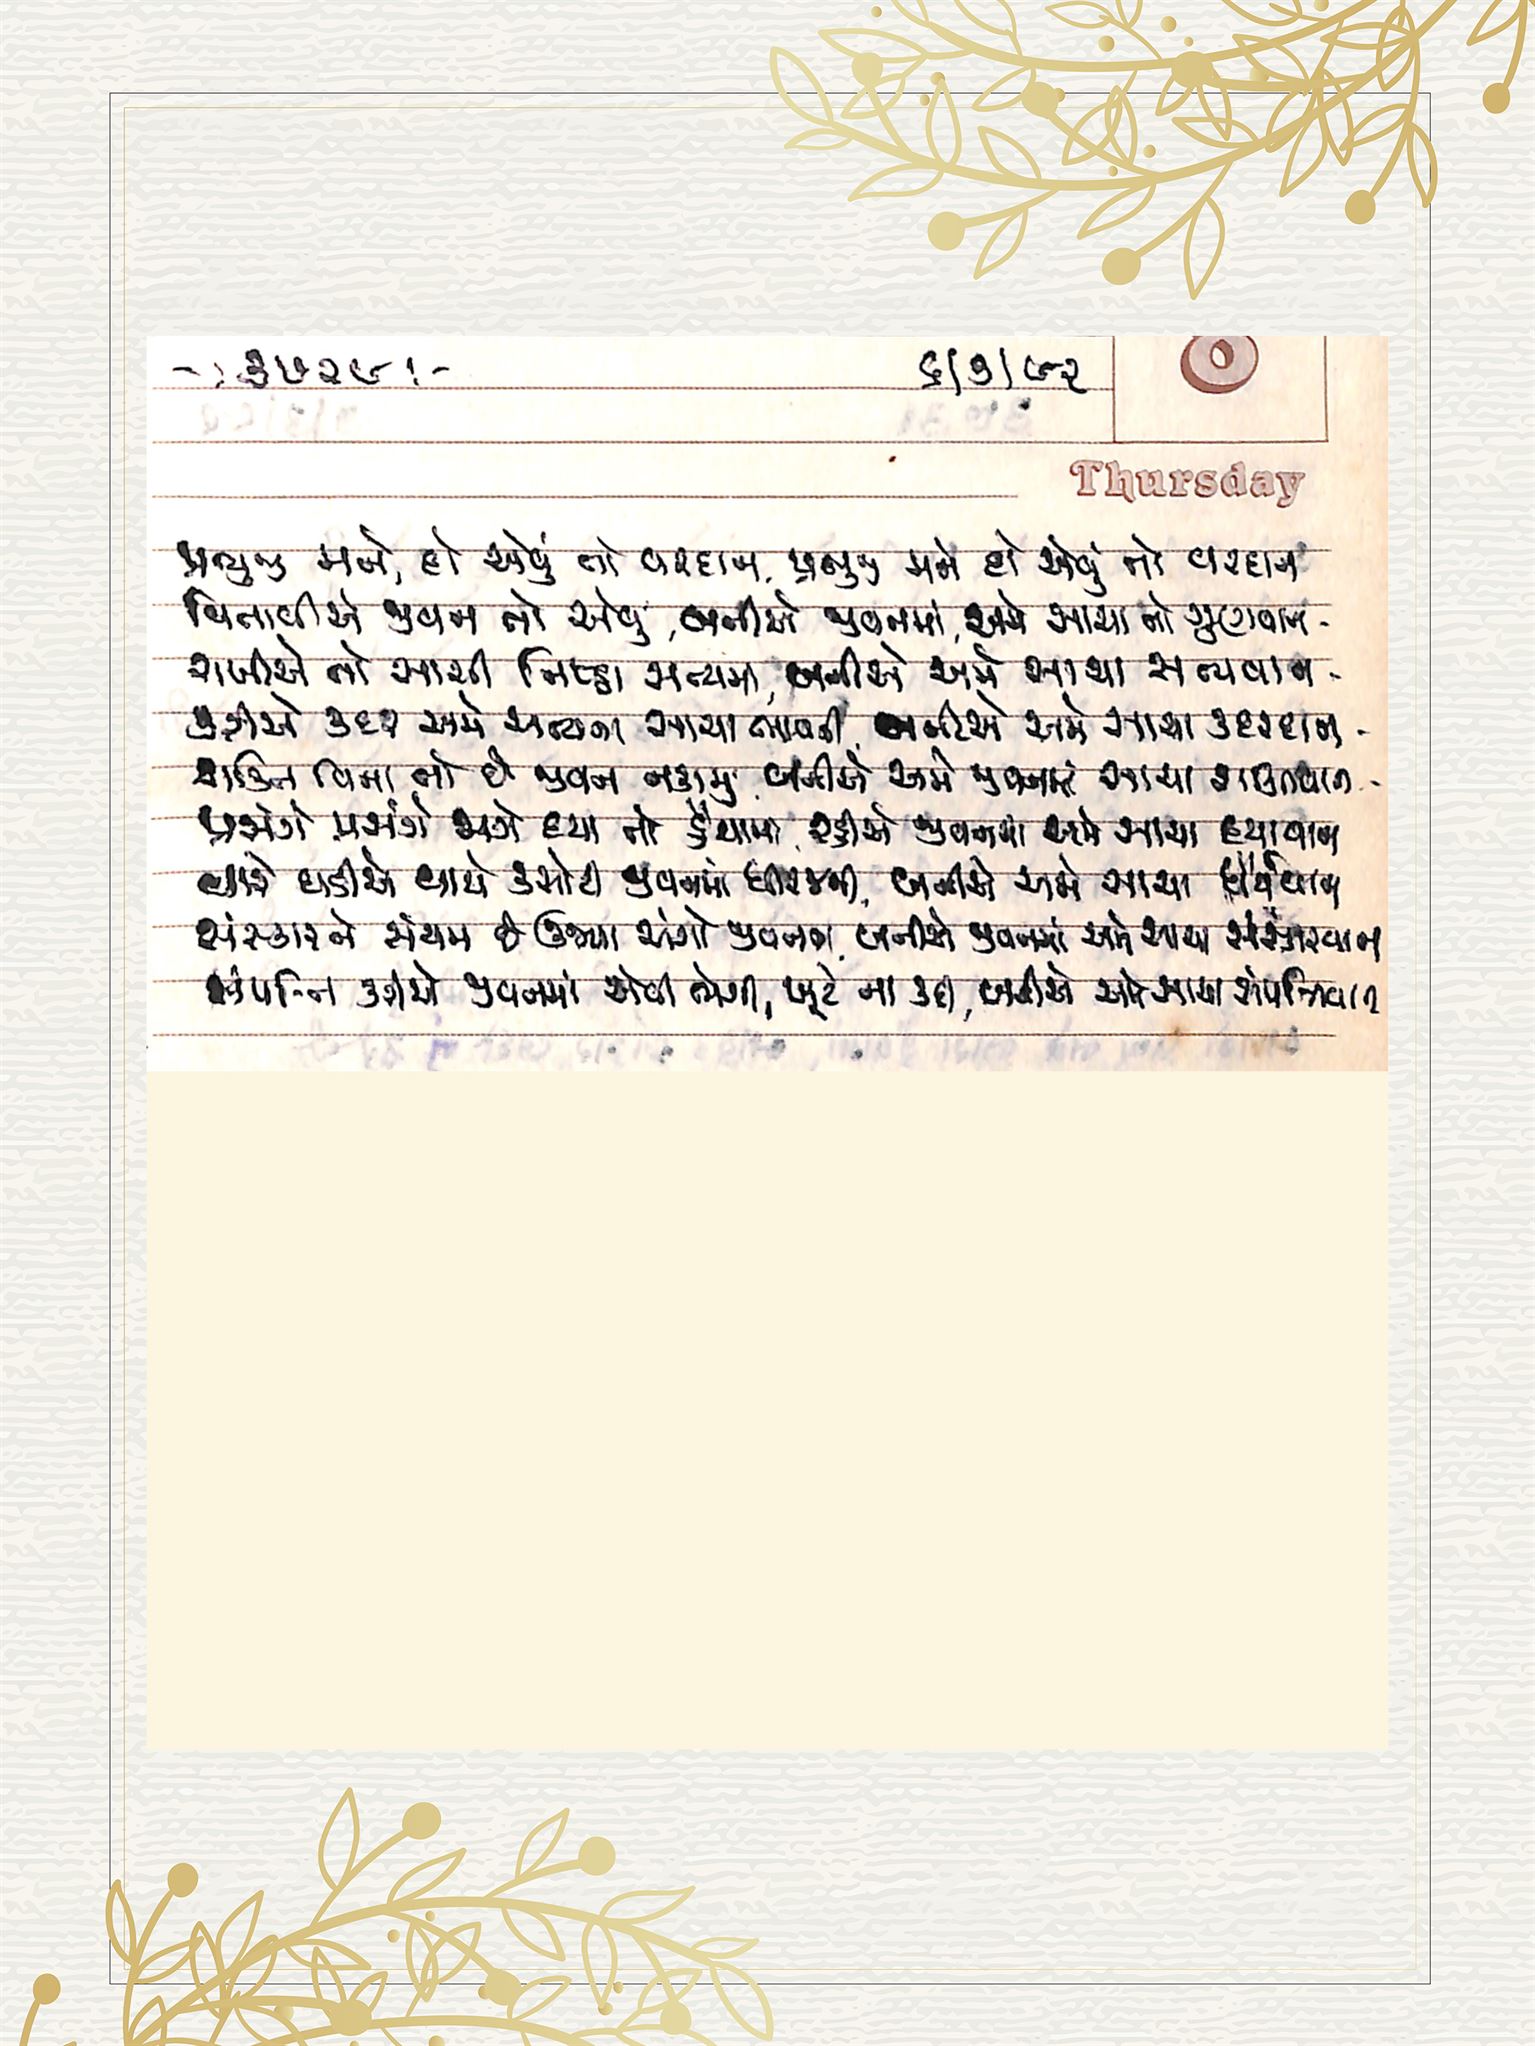 -: ૩૭૨૯ :-
૬/૭/૯૨
Thursday
પ્રભુજી મને, દો એવું તો વરદાન, પ્રભુજી મને દો એવું તો વરદાન
વિતાવીએ જીવન તો એવું, બનીએ જીવનમાં, અમે સાચા તો ગુણવાન.
રાખીએ તો સાચી નિષ્ઠા સત્યમાં, બનીએ અમે સાચા સત્યવાન.
કરીએ કદર અમે અન્યના સાચા ભાવની, બનીએ અમે સાચા કદરદાન.
શક્તિ વિના તો છે જીવન નકામું, બનીએ અમે જીવનમાં સાચા શક્તિવાન.
પ્રસંગે પ્રસંગે જાગે દયા તો હૈયામાં, રહીએ જીવનમાં અમે સાચા દયાવાન
ઘડીએ ઘડીએ થાયે કસોટી જીવનમાં ધીરજની, બનીએ અમે સાચા ધૈર્યવાન
સંસ્કાર ને સંયમ છે ઉજળા અંગો જીવનના, બનીએ જીવનમાં અમે સાચા સંસ્કારવાન
સંપત્તિ કરીએ જીવનમાં એવી ભેગી, ખૂટે ના કદી, બનીએ અમે સાચા સંપત્તિવાન